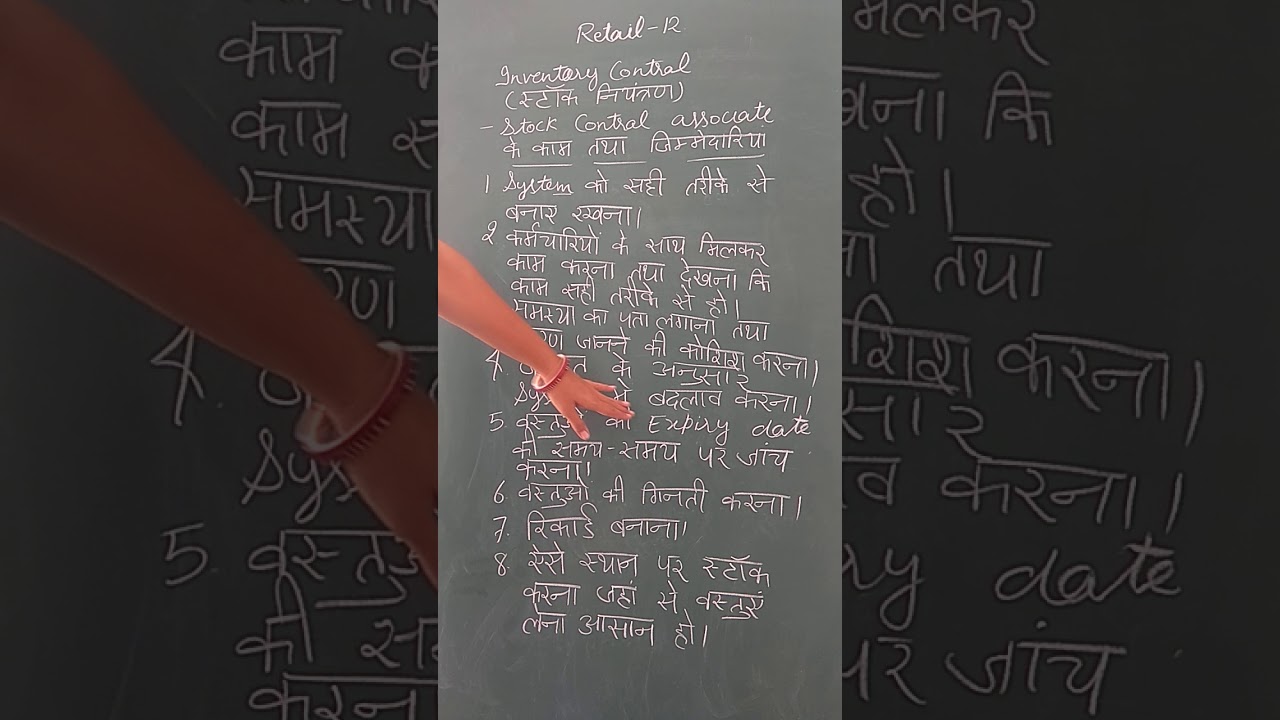 Retail-12
Inventory Control
(स्टॉक नियंत्रण)
- Stock Control associate
के काम तथा जिम्मेदारियां
1 System को सही तरीके से
बनाए रखना।
2 कर्मचारियों के साथ मिलकर
काम करना तथा देखना कि
काम सही तरीके से हो।
समस्या का पता लगाना तथा
जानने की कोशिश करना।
4. के अनुसार
में बदलाव करना।
5. Expiry date
की समय-समय पर जांच
करना।
6. वस्तुओं की गिनती करना।
7. रिकार्ड बनाना।
8. ऐसे स्थान पर स्टॉक
करना जहां से वस्तुएं
लेना आसान हो।